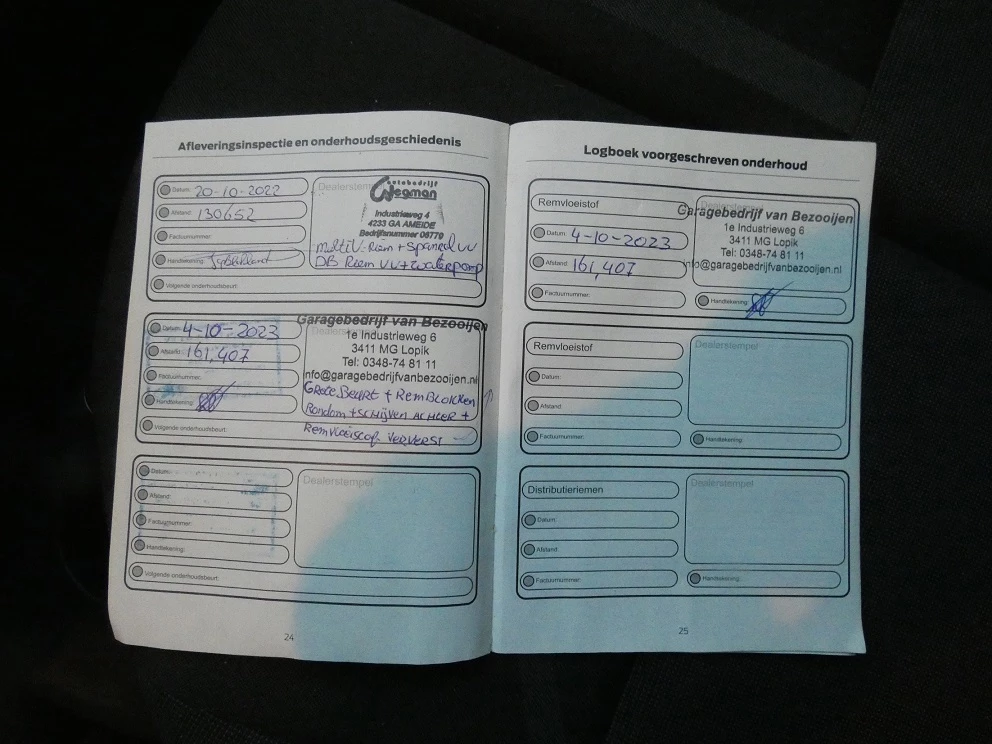 Afleveringsinspectie en onderhoudsgeschiedenis
Datum: 20-10-2022
Afstand: 130652
Factuurnummer:
Handtekening:
Volgende onderhoudsbeurt:
Dealerstempel
autobedrijf
Wegman
Industrieweg 4
4233 GA AMEIDE
Bedrijfsnummer 06770
multiV-Riem + spanrol VV
DB Riem VV + Waterpomp
Datum: 4-10-2023
Afstand: 161,407
Factuurnummer:
Handtekening:
Volgende onderhoudsbeurt:
Garagebedrijf van Bezooijen
1e Industrieweg 6
3411 MG Lopik
Tel: 0348-74 81 11
nfo@garagebedrijfvanbezooijen.nl
Grote Beurt + RemBlokken
Rondom + schijven Achter +
Remvloeistof ververst
Datum:
Afstand:
Factuurnummer:
Handtekening:
Volgende onderhoudsbeurt:
Dealerstempel
24
Logboek voorgeschreven onderhoud
Remvloeistof
Datum: 4-10-2023
Afstand: 161,407
Factuurnummer:
Dealerstempel
Garagebedrijf van Bezooijen
1e Industrieweg 6
3411 MG Lopik
Tel: 0348-74 81 11
info@garagebedrijfvanbezooijen.nl
Handtekening:
Remvloeistof
Datum:
Afstand
Factuurnummer:
Dealerstempel
Handtekening:
Distributieriemen
Datum:
Afstand:
Factuurnummer:
Dealerstempel
Handtekening:
25